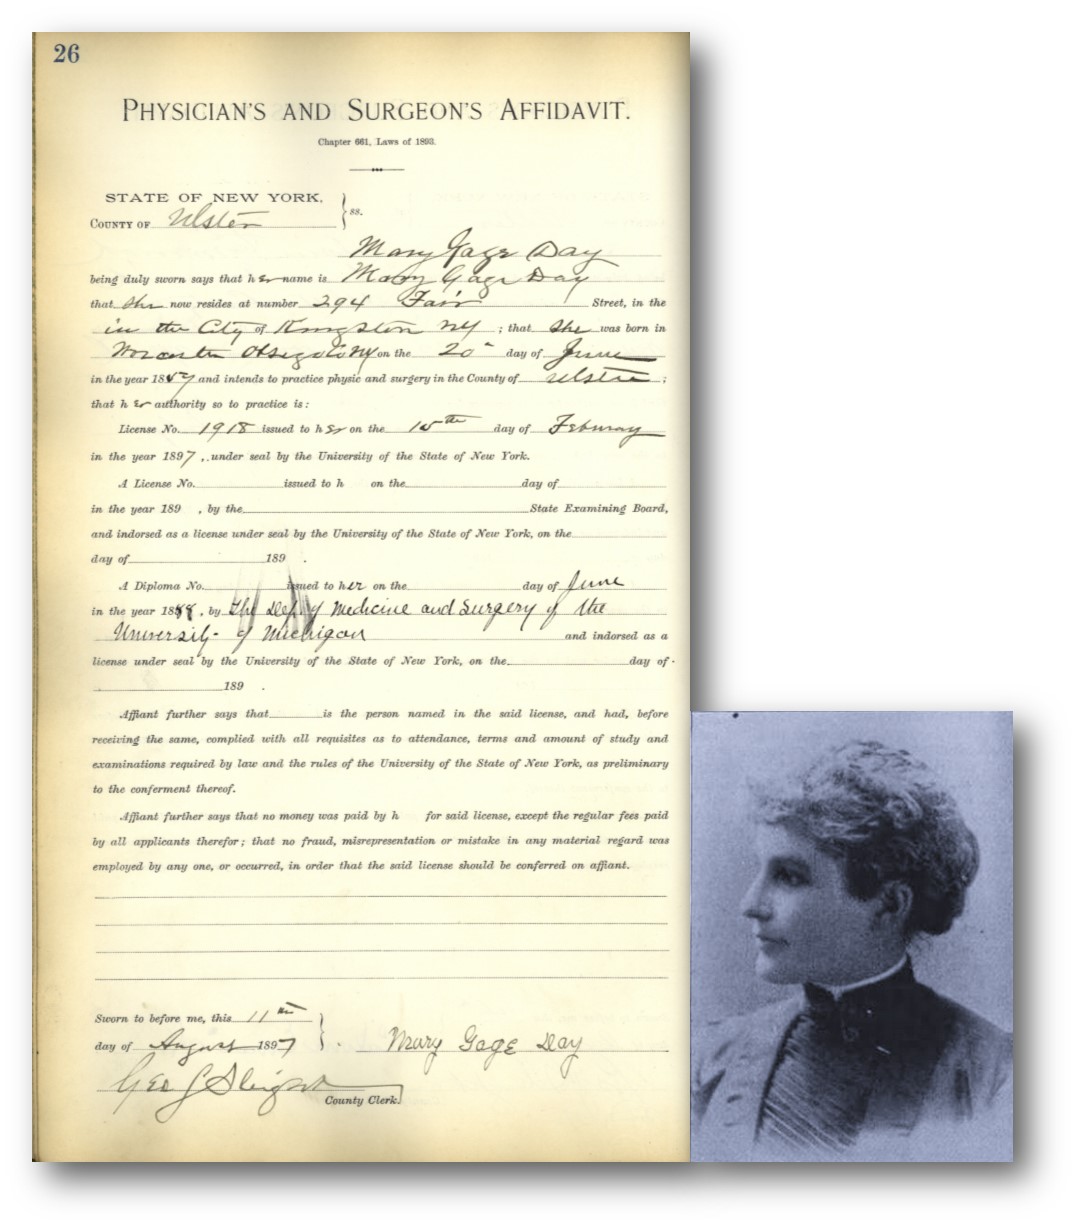 26
PHYSICIAN'S AND SURGEON'S AFFIDAVIT.
Chapter 661, Laws of 1893.
STATE OF NEW YORK,
COUNTY OF Ulster } ss.
Mary Gage Day
being duly sworn says that her name is Mary Gage Day
that she now resides at number 294 Fair Street, in the
in the City of Kingston NY ; that She was born in
Worcester Otsego Co NY on the 20 day of June
in the year 1857 and intends to practice physic and surgery in the County of Ulster ;
that her authority so to practice is:
License No. 1918 issued to her on the 15th day of Februay
in the year 1897, under seal by the University of the State of New York.
A License No. issued to h on the day of
in the year 189 , by the State Examining Board,
and indorsed as a license under seal by the University of the State of New York, on the
day of 189 .
A Diploma No. issued to her on the day of June
in the year 1888, by The Dep. of Medicine and Surgery of the
University of Michigan and indorsed as a
license under seal by the University of the State of New York, on the day of
189 .
Affiant further says that is the person named in the said license, and had, before
receiving the same, complied with all requisites as to attendance, terms and amount of study and
examinations required by law and the rules of the University of the State of New York, as preliminary
to the conferment thereof.
Affiant further says that no money was paid by h for said license, except the regular fees paid
by all applicants therefor; that no fraud, misrepresentation or mistake in any material regard was
employed by any one, or occurred, in order that the said license should be conferred on affiant.
Sworn to before me, this 11th
day of August 1897 } . Mary Gage Day
Geo
County Clerk.